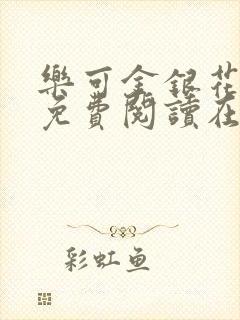 樂可金銀花
免費閱讀在
彩虹鱼